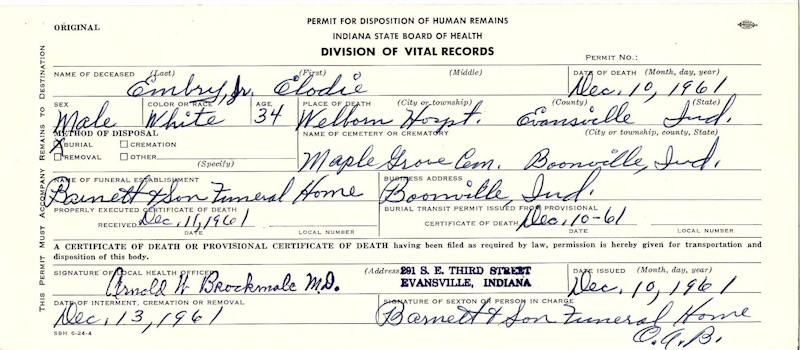 ORIGINAL
PERMIT FOR DISPOSITION OF HUMAN REMAINS
INDIANA STATE BOARD OF HEALTH
DIVISION OF VITAL RECORDS
PERMIT NO.:
THIS PERMIT MUST ACCOMPANY REMAINS TO DESTINATION
NAME OF DECEASED (Last) (First) (Middle) DATE OF DEATH (Month, day, year)
Embry, Jr. Elodie Dec. 10, 1961
SEX COLOR OR RACE AGE PLACE OF DEATH (City or township) (County) (State)
Male White 34 Welborn Hospt. Evansville Ind.
METHOD OF DISPOSAL NAME OF CEMETERY OR CREMATORY (City or township, county, State)
X BURIAL CREMATION
REMOVAL OTHER
(Specify)
Maple Grove Cem. Boonville, Ind.
NAME OF FUNERAL ESTABLISHMENT BUSINESS ADDRESS
Barnett & Son Funeral Home Boonville, Ind.
PROPERLY EXECUTED CERTIFICATE OF DEATH BURIAL TRANSIT PERMIT ISSUED FROM PROVISIONAL
RECEIVED Dec. 11, 1961 LOCAL NUMBER CERTIFICATE OF DEATH Dec. 10-61 LOCAL NUMBER
A CERTIFICATE OF DEATH OR PROVISIONAL CERTIFICATE OF DEATH having been filed as required by law, permission is hereby given for transportation and
disposition of this body.
SIGNATURE OF LOCAL HEALTH OFFICER (Address) 291 S. E. THIRD STREET DATE ISSUED (Month, day, year)
Arnold W Brockmole M.D. EVANSVILLE, INDIANA Dec. 10, 1961
DATE OF INTERMENT, CREMATION OR REMOVAL SIGNATURE OF SEXTON OR PERSON IN CHARGE
Dec. 13, 1961 Barnett & Son Funeral Home
SBH 6-24-4 C.A.B.